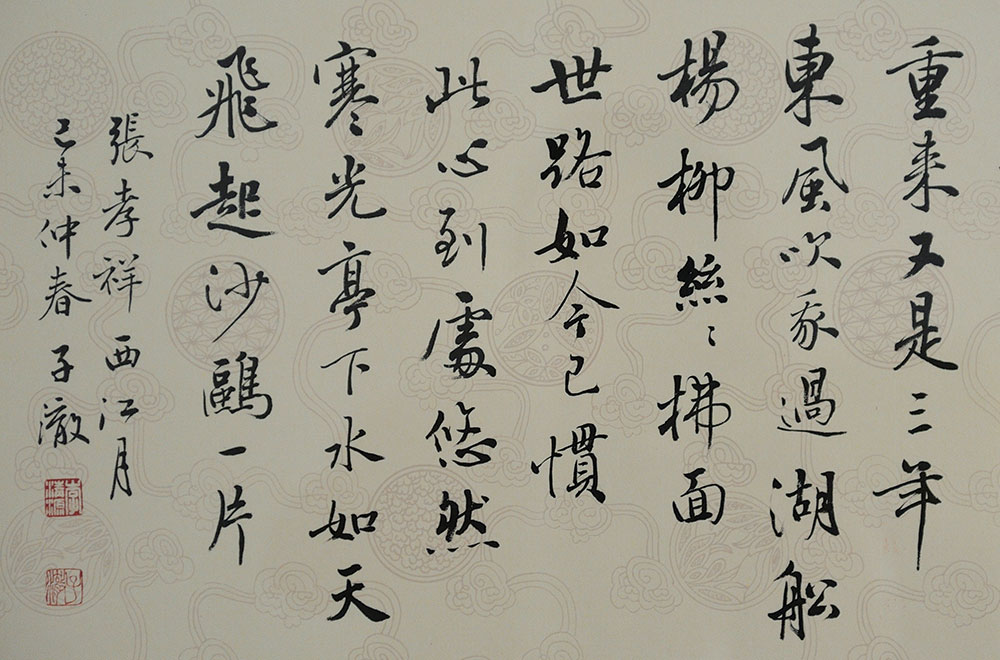 重来又是三年
東風吹我過湖舩
楊柳絲〻拂面
世路如今已慣
此心到處悠然
寒光亭下水如天
飛起沙鷗一片
張孝祥西江月
己未仲春 子澈